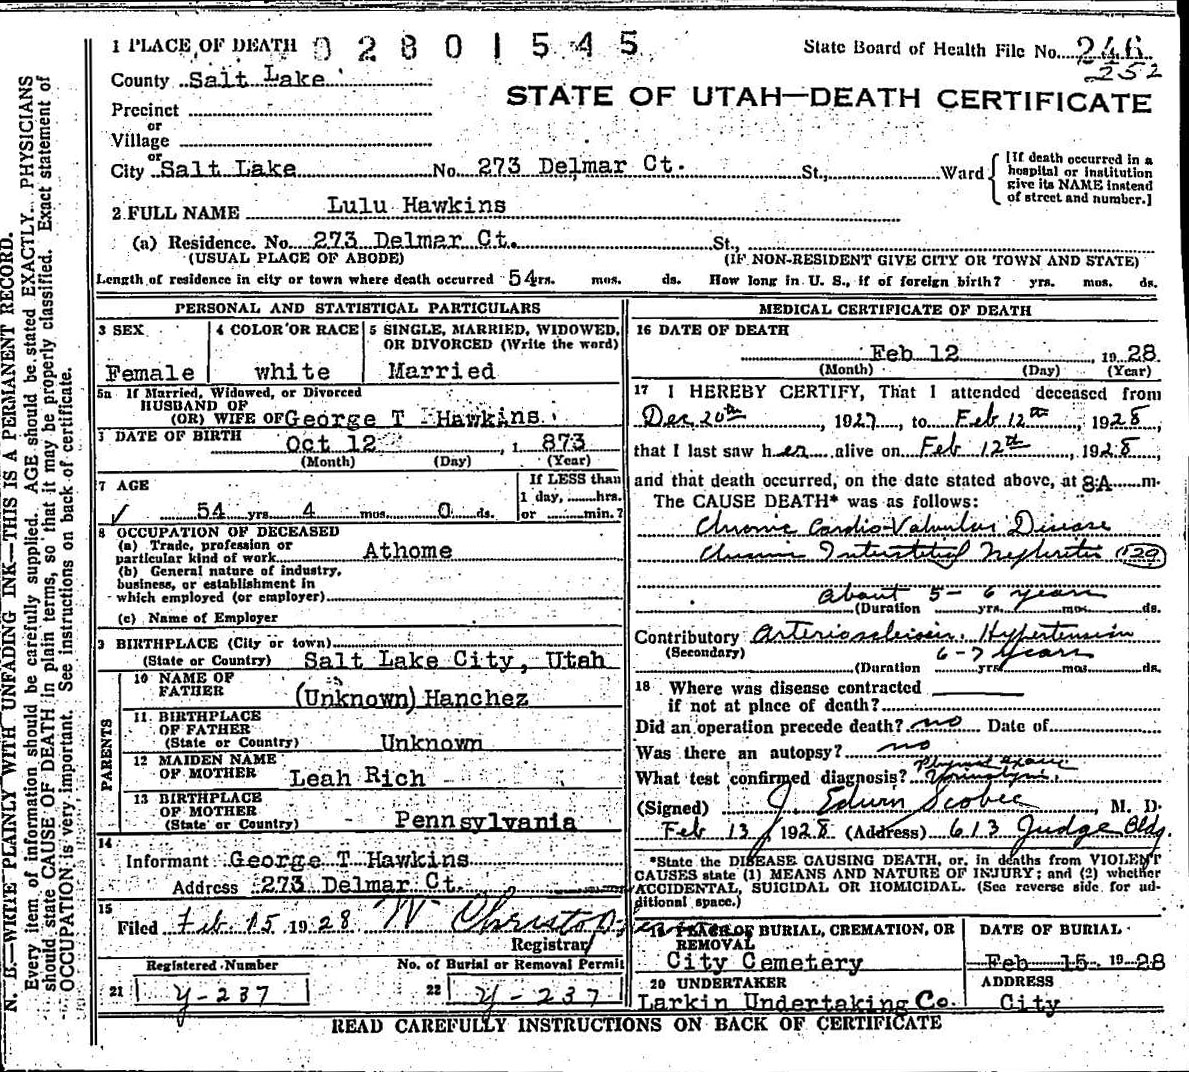 1 PLACE OF DEATH 02801545
State Board of Health File No. 246
252
County Salt Lake
STATE OF UTAH—DEATH CERTIFICATE
Precinct
or
Village
or
City Salt Lake No. 273 Delmar Ct. St., Ward
[If death occurred in a hospital or institution give its NAME instead of street and number.]
2 FULL NAME Lulu Hawkins
(a) Residence. No. 273 Delmar Ct. St.,
(USUAL PLACE OF ABODE) (IF NON-RESIDENT GIVE CITY OR TOWN AND STATE)
Length of residence in city or town where death occurred 54 yrs. mos. ds. How long in U. S., if of foreign birth? yrs. mos. ds.
PERSONAL AND STATISTICAL PARTICULARS
3 SEX 4 COLOR OR RACE 5 SINGLE, MARRIED, WIDOWED, OR DIVORCED (Write the word)
Female white Married
5a If Married, Widowed, or Divorced
HUSBAND OF
(OR) WIFE OF George T Hawkins
DATE OF BIRTH Oct 12 , 1 873
(Month) (Day) (Year)
7 AGE
If LESS than
1 day, hrs.
54 yrs. 4 mos. 0 ds. or min.?
8 OCCUPATION OF DECEASED
(a) Trade, profession or
particular kind of work Athome
(b) General nature of industry,
business, or establishment in
which employed (or employer)
(c) Name of Employer
9 BIRTHPLACE (City or town)
(State or Country) Salt Lake City, Utah
PARENTS
10 NAME OF
FATHER (Unknown) Hanchez
11 BIRTHPLACE
OF FATHER
(State or Country) Unknown
12 MAIDEN NAME
OF MOTHER Leah Rich
13 BIRTHPLACE
OF MOTHER
(State or Country) Pennsylvania
14
Informant George T Hawkins
Address 273 Delmar Ct.
15
Filed Feb. 15 1928
Registrar
Registered Number No. of Burial or Removal Permit
21 Y-237 22 Y-237
MEDICAL CERTIFICATE OF DEATH
16 DATE OF DEATH
Feb 12 19 28
(Month) (Day) (Year)
17 I HEREBY CERTIFY, That I attended deceased from
Dec 20th, 1927, to Feb 12th, 1928,
that I last saw her alive on Feb 12th, 1928,
and that death occurred, on the date stated above, at 8 A m.
The CAUSE DEATH* was as follows:
Chronic Cardio-Valvular Disease
Chronic Interstitial Nephritis 129
about 5-6 years
(Duration yrs. mos. ds.
Contributory Arteriosclerosis. Hypertension
(Secondary) 6-7 years
(Duration yrs. mos. ds.
18 Where was disease contracted
if not at place of death?
Did an operation precede death? no Date of
Was there an autopsy? no
What test confirmed diagnosis? Physical exam Urinalysis.
(Signed) J Edwin Scobee, M. D.
Feb 13 1928 (Address) 613 Judge Bldg.
*State the DISEASE CAUSING DEATH, or, in deaths from VIOLENT
CAUSES state (1) MEANS AND NATURE OF INJURY; and (2) whether
ACCIDENTAL, SUICIDAL OR HOMICIDAL. (See reverse side for additional space.)
19 PLACE OF BURIAL, CREMATION, OR REMOVAL DATE OF BURIAL
City Cemetery Feb 15 19 28
20 UNDERTAKER ADDRESS
Larkin Undertaking Co. City
READ CAREFULLY INSTRUCTIONS ON BACK OF CERTIFICATE
N. B.—WRITE PLAINLY WITH UNFADING INK—THIS IS A PERMANENT RECORD.
Every item of information should be carefully supplied. AGE should be stated EXACTLY. PHYSICIANS
should state CAUSE OF DEATH in plain terms, so that it may be properly classified. Exact statement of
OCCUPATION is very important. See instructions on back of certificate.